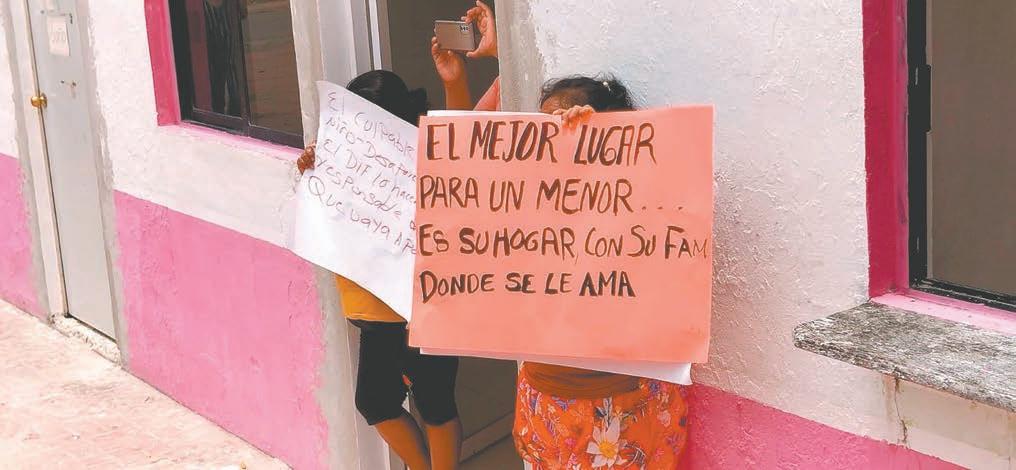 El Culpable
niño-Desapare
El DIF lo hace
responsable
Que vaya A
EL MEJOR LUGAR
PARA UN MENOR...
ES SU HOGAR, CON SU FAM
DONDE SE LE AMA